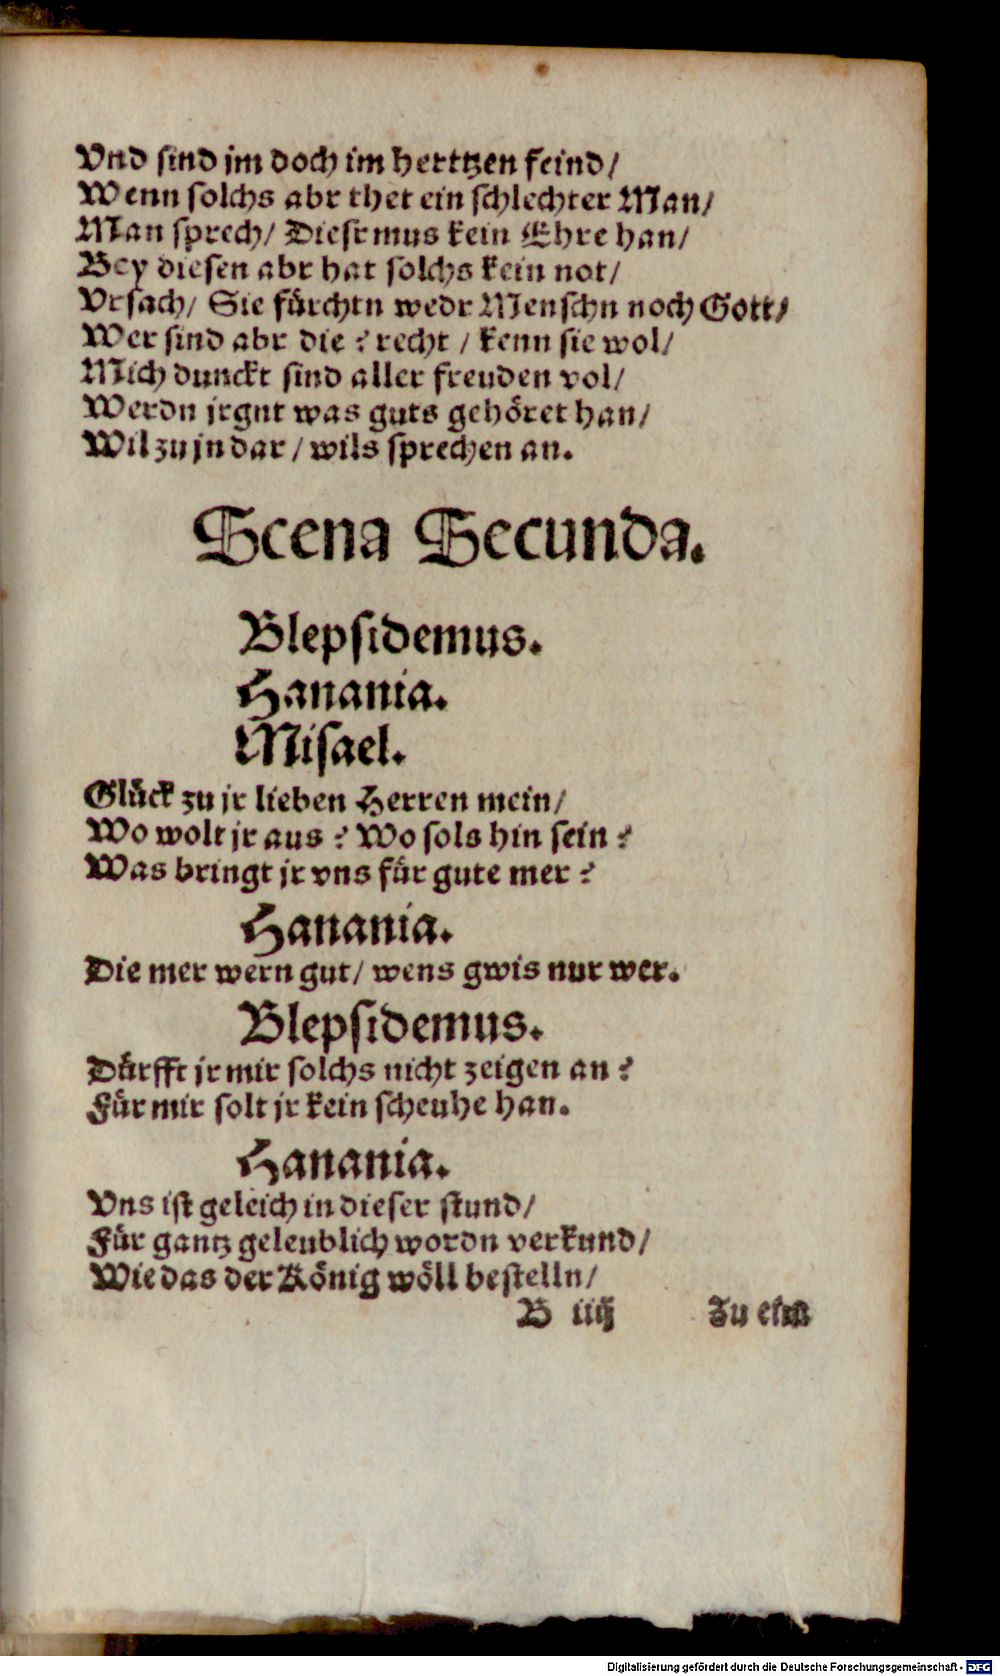 Vnd sind jm doch im hertzen feind/
Wenn solchs abr thet ein schlechter Man/
Man sprech/ Diesr mus kein Ehre han/
Bey diesen abr hat solchs kein not/
Vrsach/ Sie fürchtn wedr Menschn noch Gott/
Wer sind abr die? recht / kenn sie wol/
Mich dunckt sind aller freuden vol/
Werdn jrgnt was guts gehöret han/
Wil zu jn dar / wils sprechen an.
Scena Secunda.
Blepsidemus.
Hanania.
Misael.
Glück zu jr lieben Herren mein/
Wo wolt jr aus? Wo sols hin sein?
Was bringt jr vns für gute mer?
Hanania.
Die mer wern gut/ wens gwis nur wer.
Blepsidemus.
Dürfft jr mir solchs nicht zeigen an?
Für mir solt jr kein scheuhe han.
Hanania.
Vns ist geleich in dieser stund/
Für gantz geleublich wordn verkund/
Wie das der König wöll bestelln/
B iiij Zu
Digitalisierung gefördert durch die Deutsche Forschungsgemeinschaft - DFG